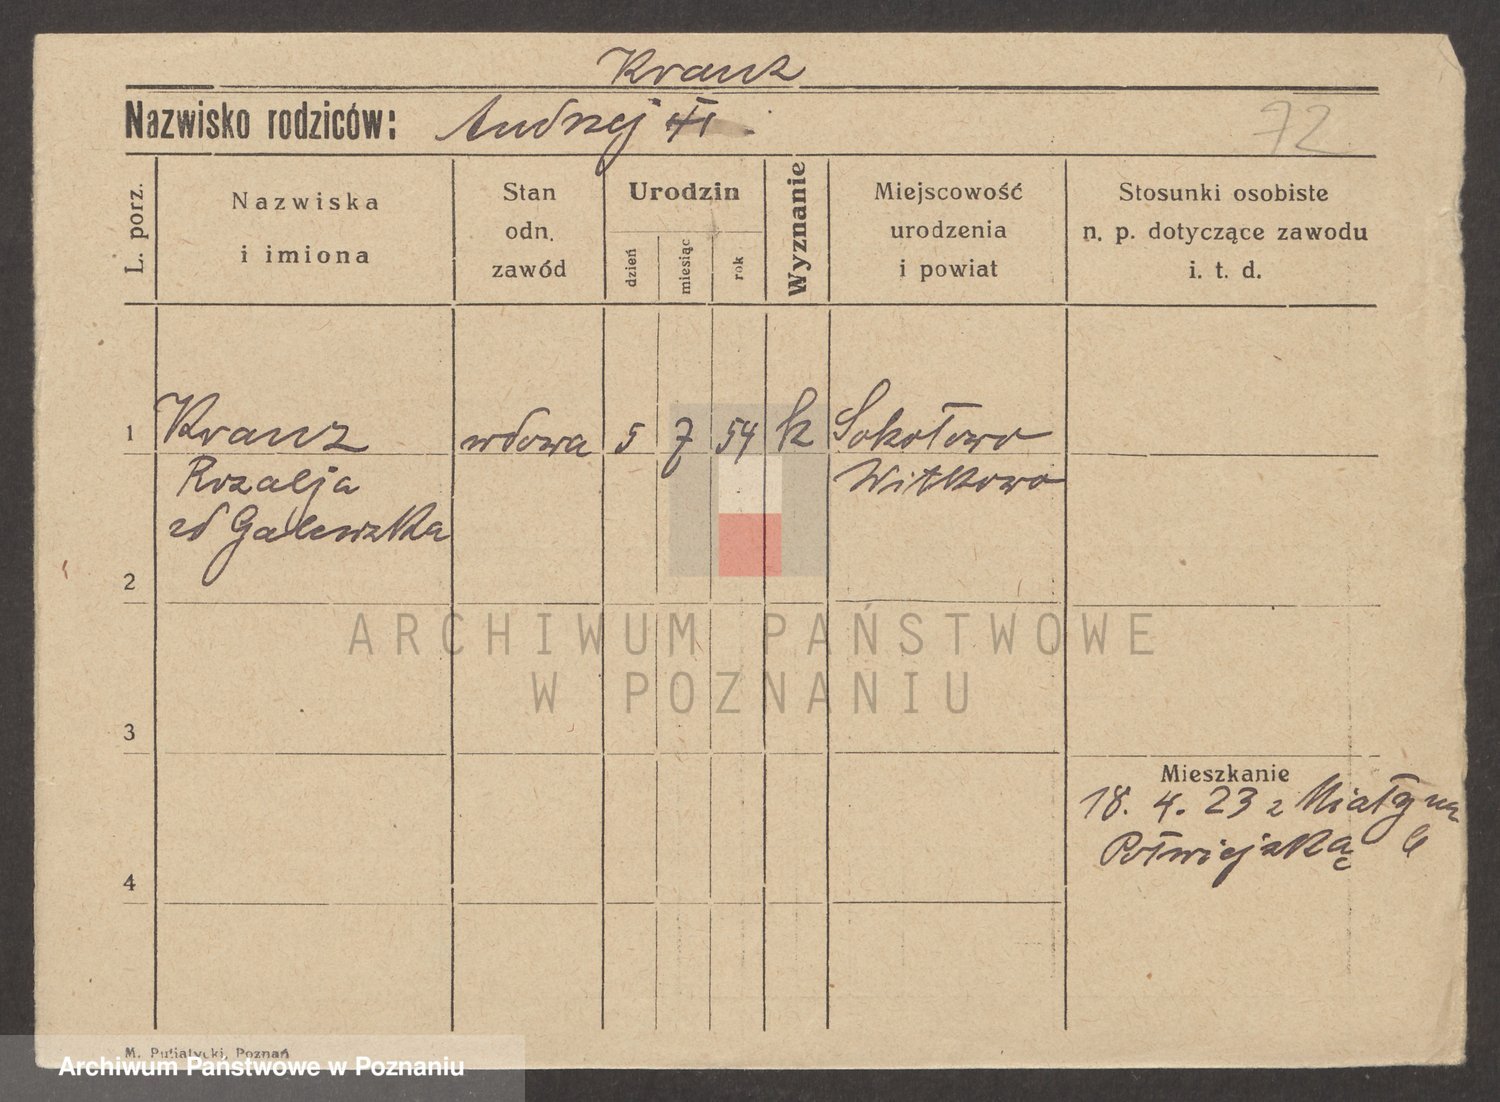 Kranz
Nazwisko rodziców: Andrzej
72
L. porz.
Nazwiska
i imiona
Stan
odn.
zawód
Urodzin
dzień
miesiąc
rok
Wyznanie
Miejscowość
urodzenia
i powiat
Stosunki osobiste
n. p. dotyczące zawodu
i. t. d.
1 Kranz wdowa 5 7 54 k Sokołowo
Rozalja Witkowo
zd Galewska
2
ARCHIWUM PAŃSTWOWE
W POZNANIU
3
Mieszkanie
18. 4. 23 z
Półwiejska
4
M. Putiatycki, Poznań
Archiwum Państwowe w Poznaniu